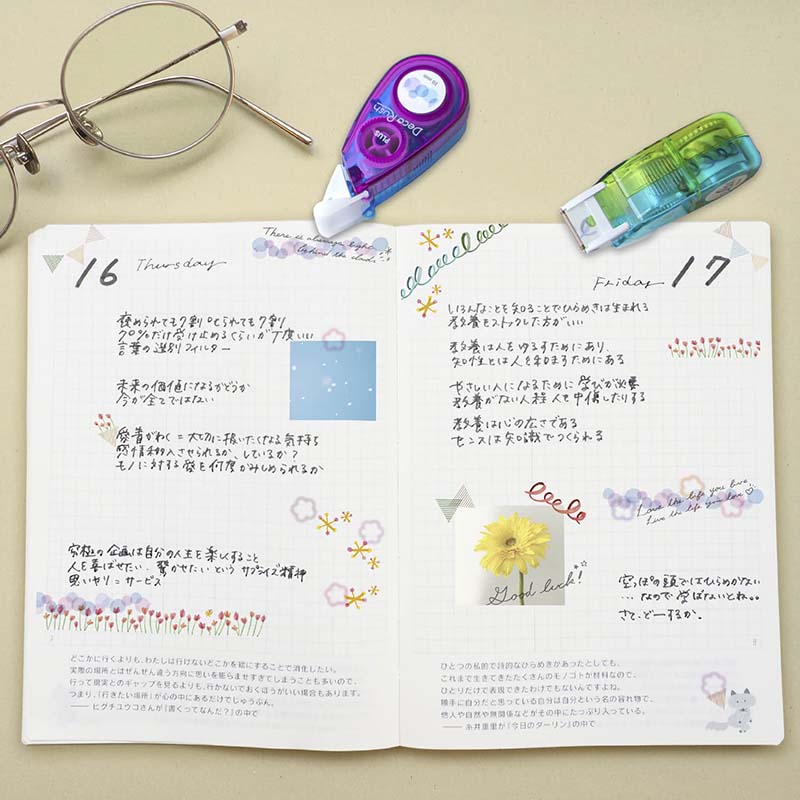 10 mm
Deco Rush
PLUS
16 Thursday
There is always light
behind the clouds.
褒められても7割 叱られても7割
70%だけ受け止めるくらいが丁度いい
言葉の選別フィルター
未来の価値になるかどうか
今が全てではない
愛着がわく=大切に扱いたくなる気持ち
感情移入させられるか、しているか?
モノに対する愛を何度かみしめられるか
究極の企画は自分の人生を楽しくすること
人を喜ばせたい、驚かせたいという サプライズ精神
思いヤリ=サービス
どこかに行くよりも、わたしは行けないどこかを絵にすることで消化したい。
実際の場所とはぜんぜん違う方向に思いを膨らませすぎてしまうことも多いので、
行って現実とのギャップを見るよりも、行かないでおくほうがいい場合もあります。
つまり、「行きたい場所」が心の中にあるだけでじゅうぶん。
—— ヒグチユウコさんが『書くってなんだ?』の中で
Friday 17
いろんなことを知ることでひらめきは生まれる
教養をストックした方がいい
教養は人をゆるすためにあり、
知性とは人を和ますためにある
やさしい人になるために 学びが必要
教養がない人程 人を中傷したりする
教養は心の広さである
センスは知識でつくられる
Love the life you live.
Live the life you love
Good luck!
空っぽの頭ではひらめかない
…なので 学ばないとね。。
さて、どーするか。
ひとつの私的で詩的なひらめきがあったとしても、
これまで生きてきたたくさんのモノゴトが材料なので、
ひとりだけで表現できたわけでもないんですよね。
勝手に自分だと思っている自分は自分という名の容れ物で、
他人や自然や無関係などがその中にたっぷり入っている。
—— 糸井重里が『今日のダーリン』の中で